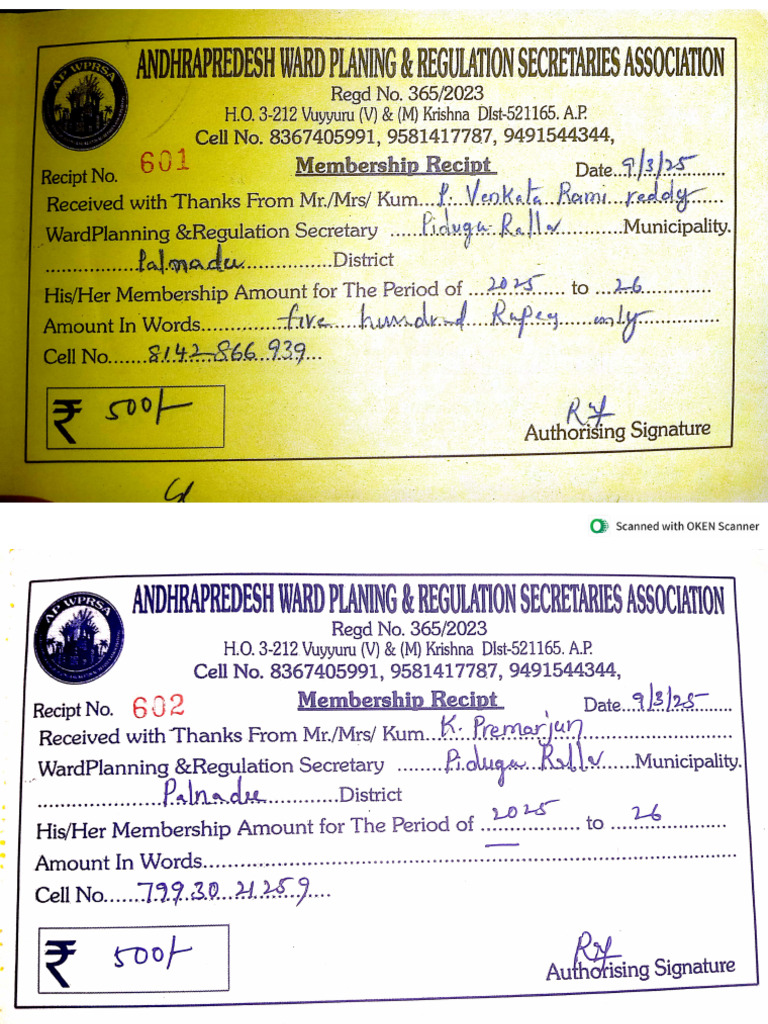 AP WPRSA
ANDHRAPREDESH WARD PLANING & REGULATION SECRETARIES ASSOCIATION
Regd No. 365/2023
H.O. 3-212 Vuyyuru (V) & (M) Krishna DIst-521165. A.P.
Cell No. 8367405991, 9581417787, 9491544344,
Recipt No. 601 Membership Recipt Date..9/3/25
Received with Thanks From Mr./Mrs/ Kum P. Venkata Rami reddy
WardPlanning &Regulation Secretary Pidugu Ralla Municipality.
Palnadu District
His/Her Membership Amount for The Period of 2025 to 26
Amount In Words five hundrd Rupes only
Cell No. 8142 866 939
₹ 500/-
Authorising Signature
Scanned with OKEN Scanner
AP WPRSA
ANDHRAPREDESH WARD PLANING & REGULATION SECRETARIES ASSOCIATION
Regd No. 365/2023
H.O. 3-212 Vuyyuru (V) & (M) Krishna DIst-521165. A.P.
Cell No. 8367405991, 9581417787, 9491544344,
Recipt No. 602 Membership Recipt Date..9/3/25
Received with Thanks From Mr./Mrs/ Kum K. Premarjun
WardPlanning &Regulation Secretary Pidugu Ralla Municipality.
Palnadu District
His/Her Membership Amount for The Period of 2025 to 26
Amount In Words
Cell No. 799 30 21259
₹ 500/-
Authorising Signature